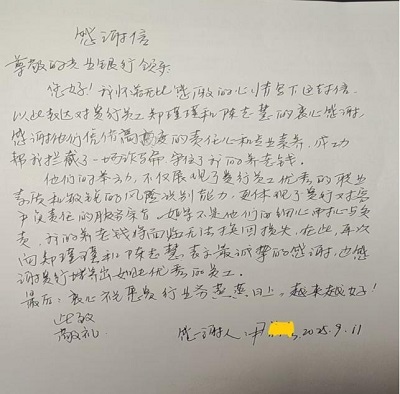 感谢信
尊敬的兴业银行领导:
您好!我怀着无比感激的心情写下这封信,
以此表达对贵行员工郑瑾瑾和陈志慧的衷心感谢。
感谢他们凭借高度的责任心和专业素养,成功
帮我拦截了一场诈骗,守住了我的养老钱。
他们的举动,不仅展现了贵行员工优秀的职业
素质和敏锐的风险识别能力,更体现了贵行对客
户负责任的服务宗旨。如果不是他们的细心耐心与负
责,我的养老钱将面临无法挽回损失,在此,再次
向郑瑾瑾和陈志慧表示最诚挚的感谢,也感
谢贵行培养出如此优秀的员工。
最后,衷心祝愿贵行业务蒸蒸日上,越来越好!
此致
敬礼
感谢人 尹 2025.9.11